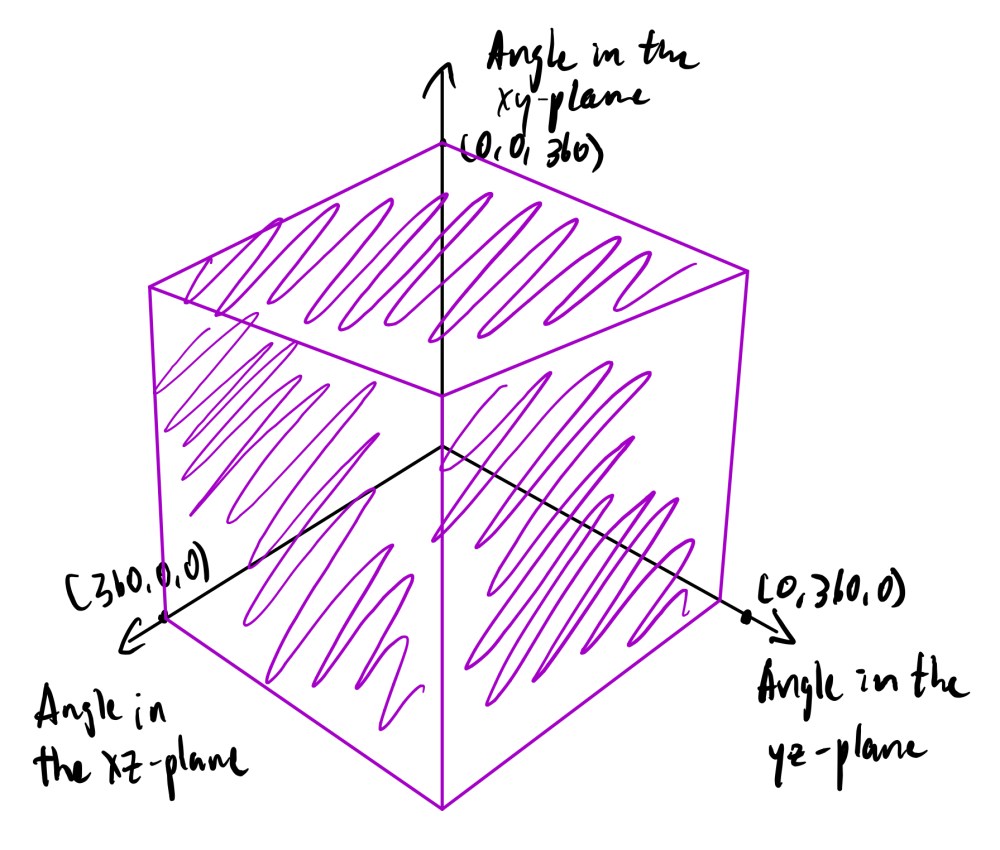 Angle in the
xy-plane
(0, 0, 360)
(360,0,0)
(0,360,0)
Angle in
the xz-plane
Angle in the
yz-plane